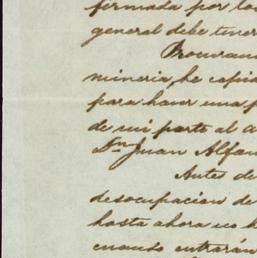 firmada por los
general debe tener
Procuran
mineria, he copia
para hacer una p
de mi parte al a
Dn Juan Alfan
Antes de
desocupacion de
hasta ahora no h
cuando entrarán